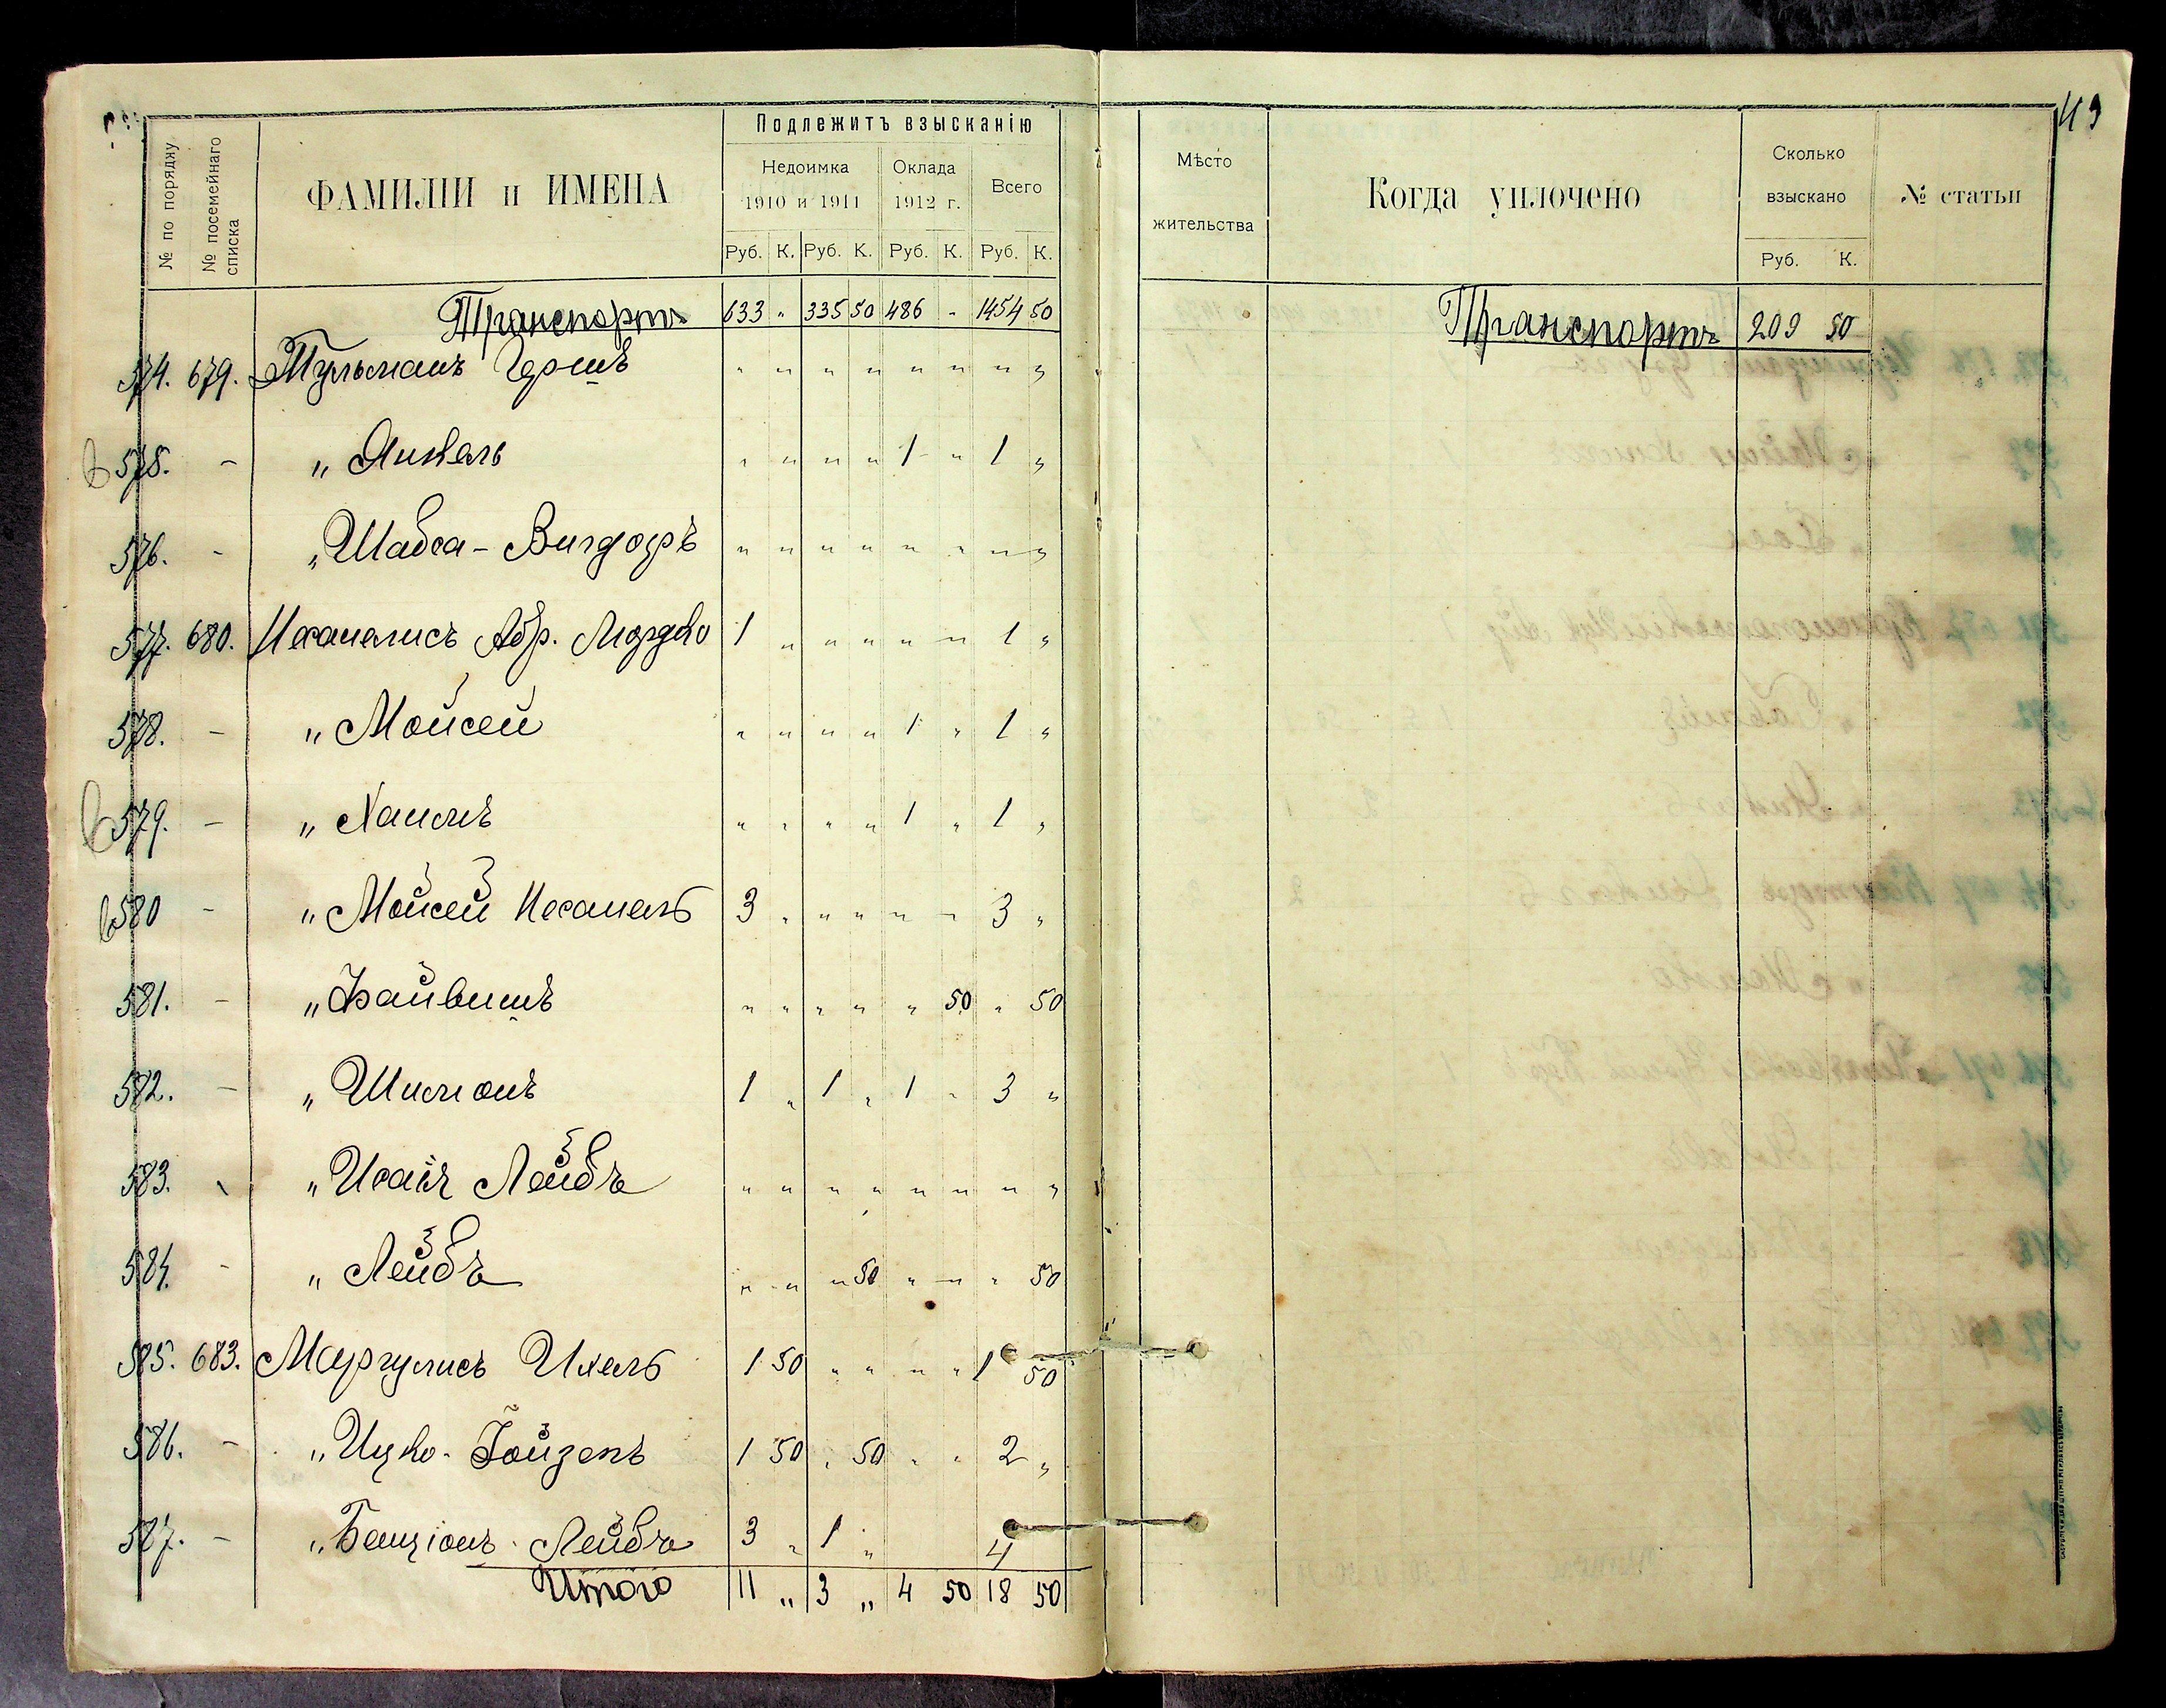 49
Подлежитъ взысканію
№ по порядку
№ посемейнаго списка
ФАМИЛІИ и ИМЕНА
Недоимка
1910 и 1911
Оклада
1912 г.
Всего
Руб. К. Руб. К. Руб. К. Руб. К.
Транспортъ 633 „ 335 50 486 „ 1454 50
574. 679. Тульманъ Гершъ „ „ „ „ „ „ „ „
575. - „ Янкель „ „ „ „ 1 „ 1 „
576. - „ Шабса-Вигдоръ „ „ „ „ „ „ „ „
577. 680. Абр. Мордко 1 „ „ „ „ „ 1 „
578. - „ Мойсей „ „ „ „ 1 „ 1 „
579. - „ Хаимъ „ „ „ „ 1 „ 1 „
580 - „ Мойсей 3 „ „ „ „ „ 3 „
581. - „ Файвишъ „ „ „ „ „ 50 „ 50
582. - „ Шимонъ 1 „ 1 „ 1 „ 3 „
583. - „ Лейбъ „ „ „ „ „ „ „ „
584. - „ Лейбъ „ „ „ 50 „ „ „ 50
585. 683. Маргулисъ Ихель 1 50 „ „ „ „ 1 50
586. - „ Ицко-Іойзепъ 1 50 „ 50 „ „ 2 „
587. - „ Бенціонъ-Лейбъ 3 „ 1 „ 4
Итого 11 „ 3 „ 4 50 18 50
Мѣсто
жительства
Когда уплочено
Сколько
взыскано
Руб. К.
№ статьи
Транспортъ 209 50